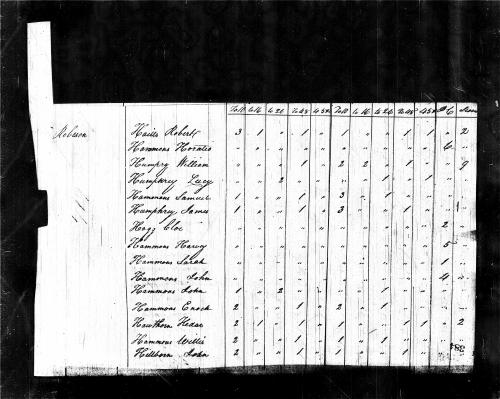 To 10 to 16 to 26 To 45 45 &c To 10 to 16 to 26 To 45 45 &c
Robeson Hails Robert 3 1 " 1 " 1 " " 1 1 " 2
Hammons Horatio " " " " " " " " " " 6 "
Humpry William " " " 1 " 2 2 " 1 " " 9
Humphrey Lucy " " 2 " " " " 1 " " " "
Hammons Samuel 1 " " 1 " 3 " 1 " " " "
Humphrey James 1 " " 1 " 3 " " 1 " " "
Hagg Cloe " " " " " " " " " " 2 "
Hammons Harvy " " " " " " " " " " 5 "
Hammons Sarah " " " " " " " " " " 1 "
Hammons John " " " " " " " " " " 4 "
Hammons John 1 " 2 " " 1 " 1 " " " "
Hammons Enoch 2 " " 1 " 2 " 1 " " " "
Hawthorn Hedar 2 1 " 1 " 1 1 " 1 1 " 2
Hammons Willis 2 " " 1 " 1 " 1 " " " "
Hillborn John 2 " " 1 " 1 " " 1 " " "